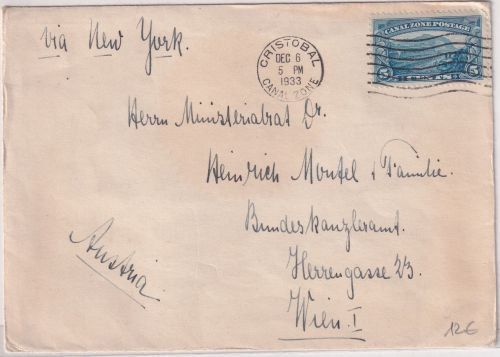 via New York.
CRISTOBAL
DEC 6
5 PM
1933
CANAL ZONE
CANAL ZONE POSTAGE
5 CENTS 5
Herrn Ministerialrat Dr.
Heinrich Montel & Familie.
Bundeskanzleramt.
Herrengasse 23.
Wien. I
Austria.
12€